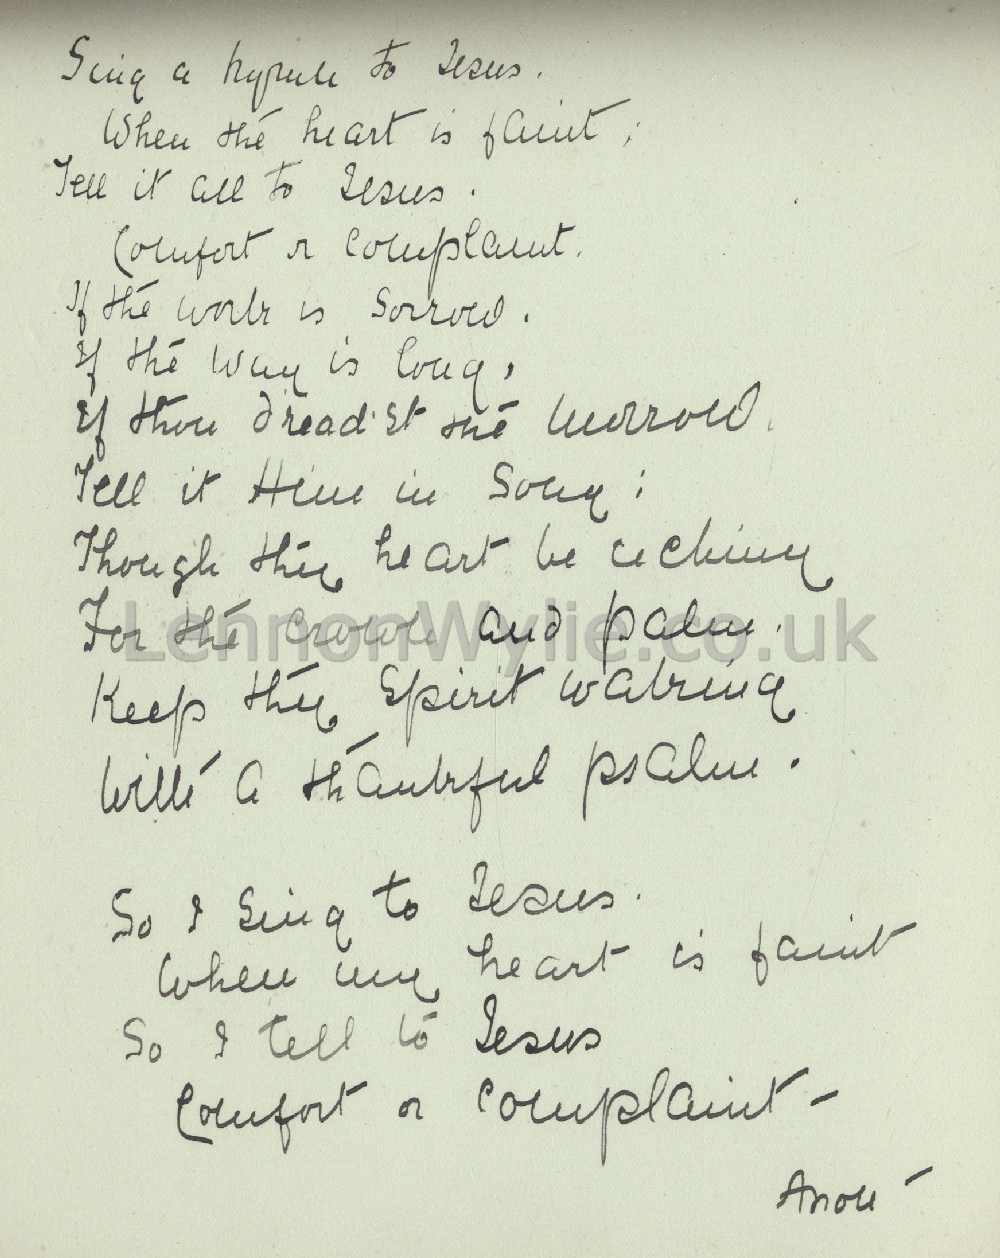 Sing a hymn to Jesus.
When the heart is faint;
Tell it all to Jesus.
Comfort or Complaint.
If the work is Sorrow.
If the way is long,
If thou dread'st the morrow.
Tell it Him in Song;
Though thy heart be aching
For the crown and palm.
Keep thy Spirit waking
With a thankful psalm.
So I Sing to Jesus.
When my heart is faint
So I tell to Jesus
Comfort or Complaint –
Anon
LennonWylie.co.uk